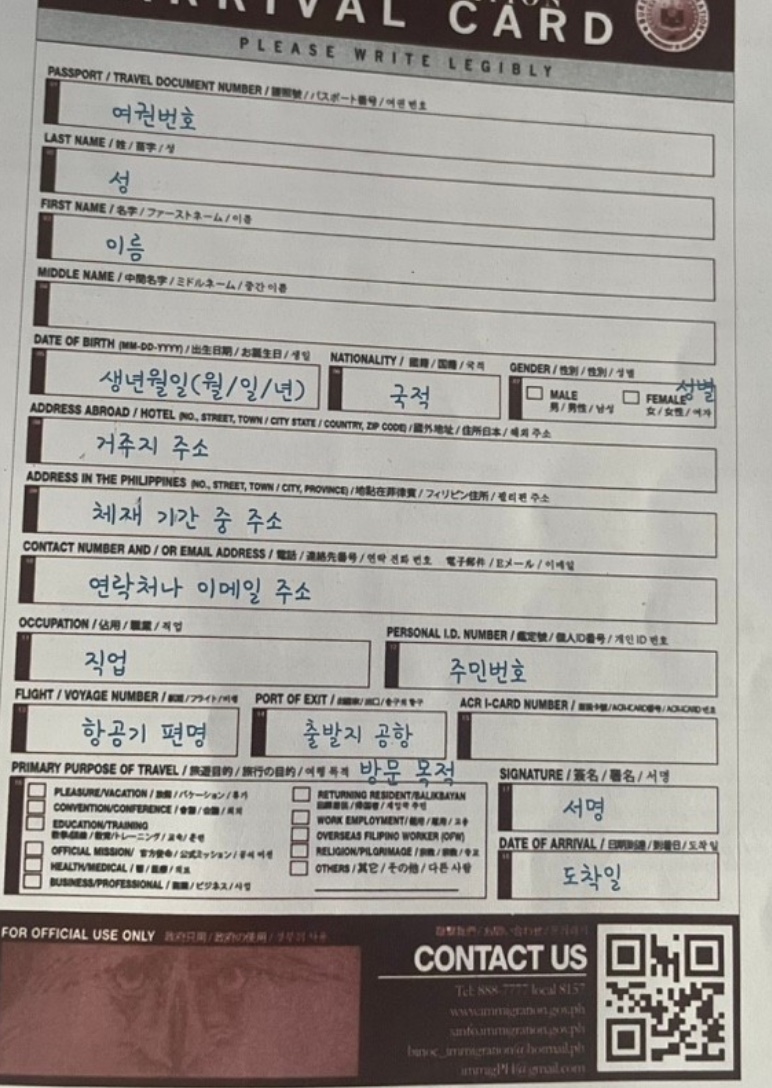 ARRIVAL CARD
PLEASE WRITE LEGIBLY
PASSPORT / TRAVEL DOCUMENT NUMBER / 護照號 / パスポート番号 / 여권 번호
여권번호
LAST NAME / 姓 / 苗字 / 성
성
FIRST NAME / 名字 / ファーストネーム / 이름
이름
MIDDLE NAME / 中間名字 / ミドルネーム / 중간 이름
DATE OF BIRTH (MM-DD-YYYY) / 出生日期 / お誕生日 / 생일
NATIONALITY / 國籍 / 国籍 / 국적
GENDER / 性別 / 性別 / 성별
생년월일(월/일/년)
국적
성별
MALE
男 / 男性 / 남성
FEMALE
女 / 女性 / 여자
ADDRESS ABROAD / HOTEL (NO., STREET, TOWN / CITY STATE / COUNTRY, ZIP CODE) / 國外地址 / 住所日本 / 해외 주소
거쥬지 주소
ADDRESS IN THE PHILIPPINES (NO., STREET, TOWN / CITY, PROVINCE) / 地點在菲律賓 / フィリピン住所 / 필리핀 주소
체재 기간 중 주소
CONTACT NUMBER AND / OR EMAIL ADDRESS / 電話 / 連絡先番号 / 연락 전화 번호 電子郵件 / Eメール / 이메일
연락처나 이메일 주소
OCCUPATION / 佔用 / 職業 / 직업
PERSONAL I.D. NUMBER / 鑑定號 / 個人ID番号 / 개인 ID 번호
직업
주민번호
FLIGHT / VOYAGE NUMBER / フライト
PORT OF EXIT / 出口
ACR I-CARD NUMBER
항공기 편명
출발지 공항
PRIMARY PURPOSE OF TRAVEL / 旅遊目的 / 旅行の目的 / 여행 목적
방문 목적
PLEASURE/VACATION / バケーション / 휴가
CONVENTION/CONFERENCE / 會議 / 会議 / 회의
EDUCATION/TRAINING
トレーニング / 교육 / 훈련
OFFICIAL MISSION / 官方使命 / 公式ミッション / 공식 미션
HEALTH/MEDICAL / 의료
BUSINESS/PROFESSIONAL / ビジネス / 사업
RETURNING RESIDENT/BALIKBAYAN
WORK EMPLOYMENT / 雇用 / 고용
OVERSEAS FILIPINO WORKER (OFW)
RELIGION/PILGRIMAGE / 宗教 / 宗教 / 종교
OTHERS / 其它 / その他 / 다른 사람
SIGNATURE / 簽名 / 署名 / 서명
서명
DATE OF ARRIVAL / 日期到達 / 到着日 / 도착 일
도착일
FOR OFFICIAL USE ONLY 政府只用 / 政府の使用
CONTACT US
Tel: 888-7777 local 8157
www.immigration.gov.ph
binoc_immigration@hotmail.ph
immigPH@gmail.com